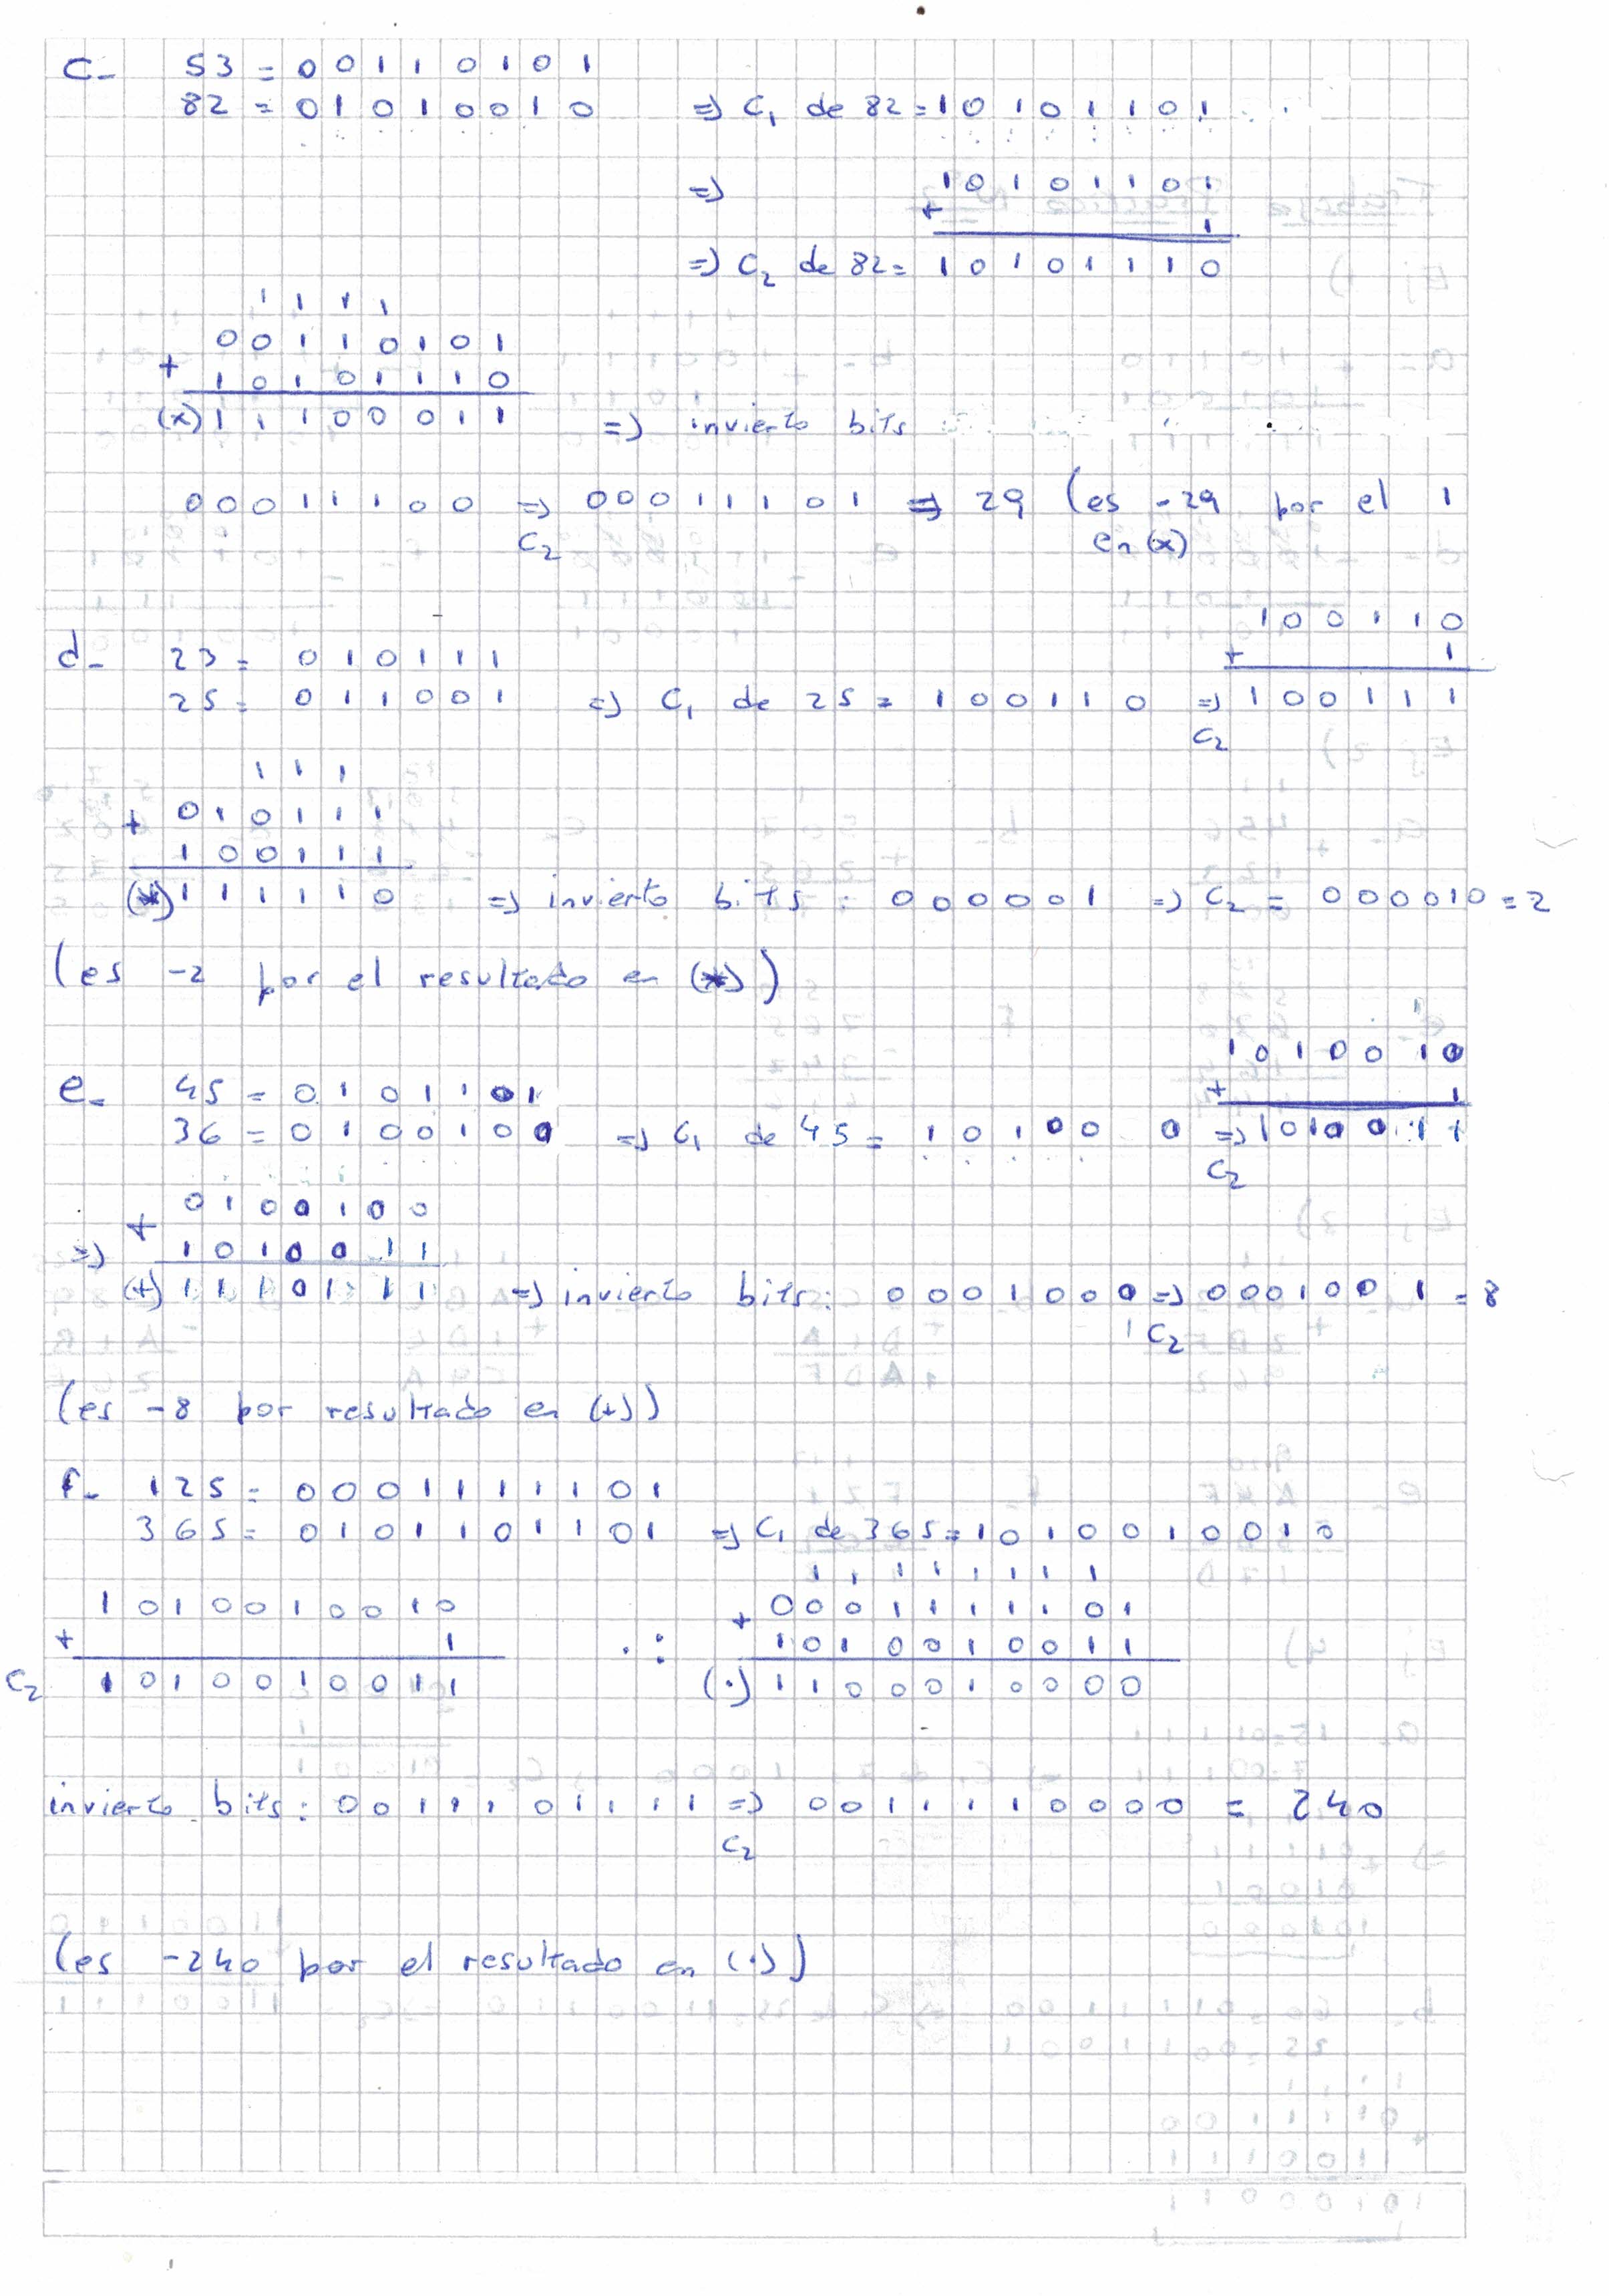 c- 53 = 0 0 1 1 0 1 0 1
82 = 0 1 0 1 0 0 1 0 => C1 de 82 = 1 0 1 0 1 1 0 1
=> 1 0 1 0 1 1 0 1
+ 1
=> C2 de 82 = 1 0 1 0 1 1 1 0
1 1 1 1
0 0 1 1 0 1 0 1
+ 1 0 1 0 1 1 1 0
(x) 1 1 1 0 0 0 1 1 => invierto bits
0 0 0 1 1 1 0 0 => C2 0 0 0 1 1 1 0 1 => 29 (es -29 por el 1
en (x)
1 0 0 1 1 0
+ 1
d- 23 = 0 1 0 1 1 1
25 = 0 1 1 0 0 1 => C1 de 25 = 1 0 0 1 1 0 => C2 1 0 0 1 1 1
1 1 1
+ 0 1 0 1 1 1
1 0 0 1 1 1
(*) 1 1 1 1 1 0 => invierto bits : 0 0 0 0 0 1 => C2 = 0 0 0 0 1 0 = 2
(es -2 por el resultado en (*))
1 0 1 0 0 1 0
+ 1
e- 45 = 0 1 0 1 1 0 1
36 = 0 1 0 0 1 0 0 => C1 de 45 = 1 0 1 0 0 0 => C2 1 0 1 0 0 1 1
0 1 0 0 1 0 0
=> + 1 0 1 0 0 1 1
(+) 1 1 1 0 1 1 1 => invierto bits: 0 0 0 1 0 0 0 => C2 0 0 0 1 0 0 1 = 8
(es -8 por resultado en (+))
f- 125 = 0 0 0 1 1 1 1 1 0 1
365 = 0 1 0 1 1 0 1 1 0 1 => C1 de 365 = 1 0 1 0 0 1 0 0 1 0
1 1 1 1 1 1 1 1
1 0 1 0 0 1 0 0 1 0 + 0 0 0 1 1 1 1 1 0 1
+ 1 ∴ 1 0 1 0 0 1 0 0 1 1
C2 1 0 1 0 0 1 0 0 1 1 (·) 1 1 0 0 0 1 0 0 0 0
invierto bits: 0 0 1 1 1 0 1 1 1 1 => C2 0 0 1 1 1 1 0 0 0 0 = 240
(es -240 por el resultado en (·))